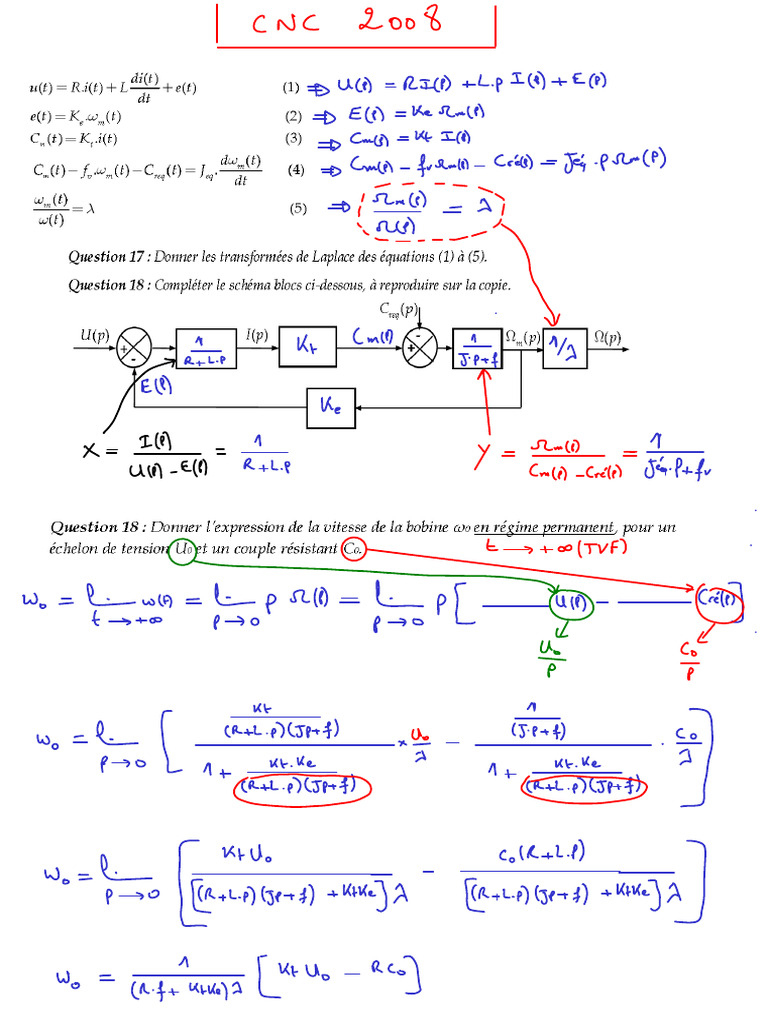 CNC 2008
u(t) = R.i(t) + L di(t)/dt + e(t) (1) ⇒ U(p) = R I(p) + L.p I(p) + E(p)
e(t) = K_e.ω_m(t) (2) ⇒ E(p) = Ke Ωm(p)
C_m(t) = K_t.i(t) (3) ⇒ Cm(p) = Kt I(p)
C_m(t) − f_v.ω_m(t) − C_req(t) = J_eq.dω_m(t)/dt (4) ⇒ Cm(p) − fv Ωm(p) − Cré(p) = Jéq.p Ωm(p)
ω_m(t)/ω(t) = λ (5) ⇒ Ωm(p)/Ω(p) = λ
Question 17 : Donner les transformées de Laplace des équations (1) à (5).
Question 18 : Compléter le schéma blocs ci-dessous, à reproduire sur la copie.
C_req(p)
U(p) + - 1/(R+L.p) I(p) Kt Cm(p) - + 1/(J.p+f) Ω_m(p) 1/λ Ω(p)
E(p) Ke
X = I(p)/(U(p) − E(p)) = 1/(R+L.p) Y = Ωm(p)/(Cm(p) − Cré(p)) = 1/(Jéq.p + fv)
Question 18 : Donner l'expression de la vitesse de la bobine ω0 en régime permanent, pour un
échelon de tension U0 et un couple résistant C0. t → +∞ (TVF)
ω0 = l. t→+∞ ω(t) = l. p→0 p Ω(p) = l. p→0 p [ ___ U(p) − ___ Cré(p) ]
U0/p C0/p
ω0 = l. p→0 [ (Kt/((R+L.p)(Jp+f)))/(1 + Kt.Ke/((R+L.p)(Jp+f))) × U0/λ − (1/(J.p+f))/(1 + Kt.Ke/((R+L.p)(Jp+f))) . C0/λ ]
ω0 = l. p→0 [ Kt U0/([(R+L.p)(Jp+f) + KtKe] λ) − C0(R+L.p)/([(R+L.p)(Jp+f) + KtKe] λ) ]
ω0 = 1/((R.f + KtKe) λ) [ Kt U0 − R C0 ]